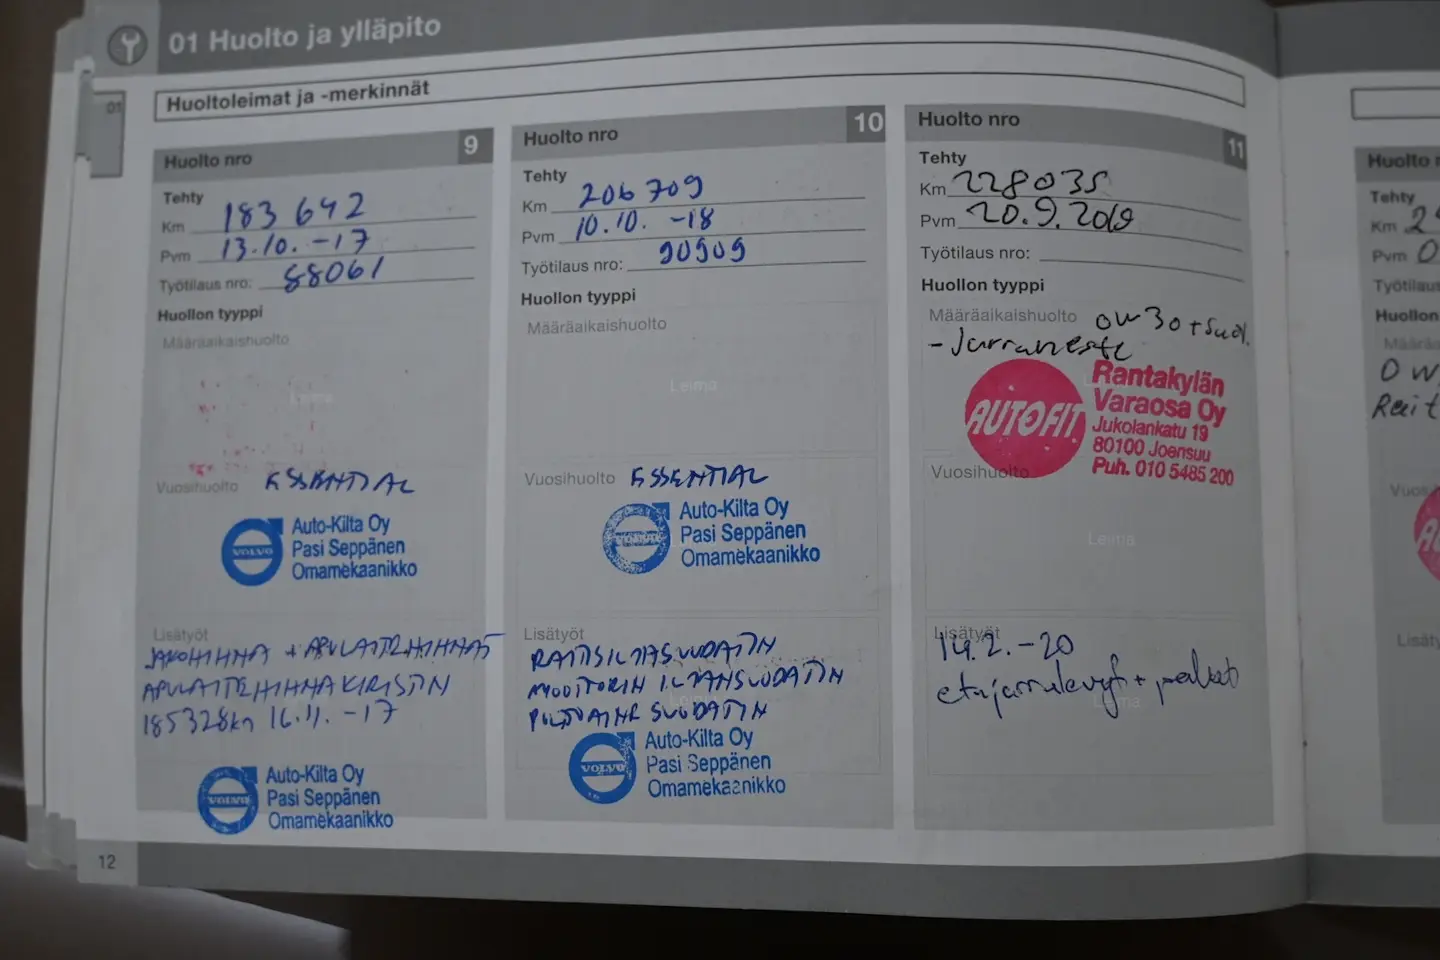 01 Huolto ja ylläpito
01
Huoltoleimat ja -merkinnät
Huolto nro 9
Tehty
Km 183 642
Pvm 13.10. -17
Työtilaus nro: 88061
Huollon tyyppi
Määräaikaishuolto
Leima
Vuosihuolto ESSENTIAL
VOLVO
Auto-Kilta Oy
Pasi Seppänen
Omamekaanikko
Lisätyöt
JAKOHIHNA + APULAITEHIHNAT
APULAITEHIHNA KIRISTIN
185328km 16.11. -17
VOLVO
Auto-Kilta Oy
Pasi Seppänen
Omamekaanikko
12
Huolto nro 10
Tehty
Km 206 709
Pvm 10.10. -18
Työtilaus nro: 90909
Huollon tyyppi
Määräaikaishuolto
Leima
Vuosihuolto ESSENTIAL
VOLVO
Auto-Kilta Oy
Pasi Seppänen
Omamekaanikko
Lisätyöt
RAITISILMASUODATIN
MOOTTORIN ILMANSUODATIN
POLTTOAINE SUODATIN
Leima
VOLVO
Auto-Kilta Oy
Pasi Seppänen
Omamekaanikko
Huolto nro 11
Tehty
Km 228035
Pvm 20.9.2019
Työtilaus nro:
Huollon tyyppi
Määräaikaishuolto 0w30 + suod.
- Jarruneste
AUTOFIT
Rantakylän
Varaosa Oy
Jukolankatu 19
80100 Joensuu
Puh. 010 5485 200
Vuosihuolto
Leima
Lisätyöt
14.2.-20
etujarrulevyt + palat
Leima
Huolto
Tehty
Km 2
Pvm 0
Työtilaus
Huollon
0w
Rait
Vuos
Lisäty